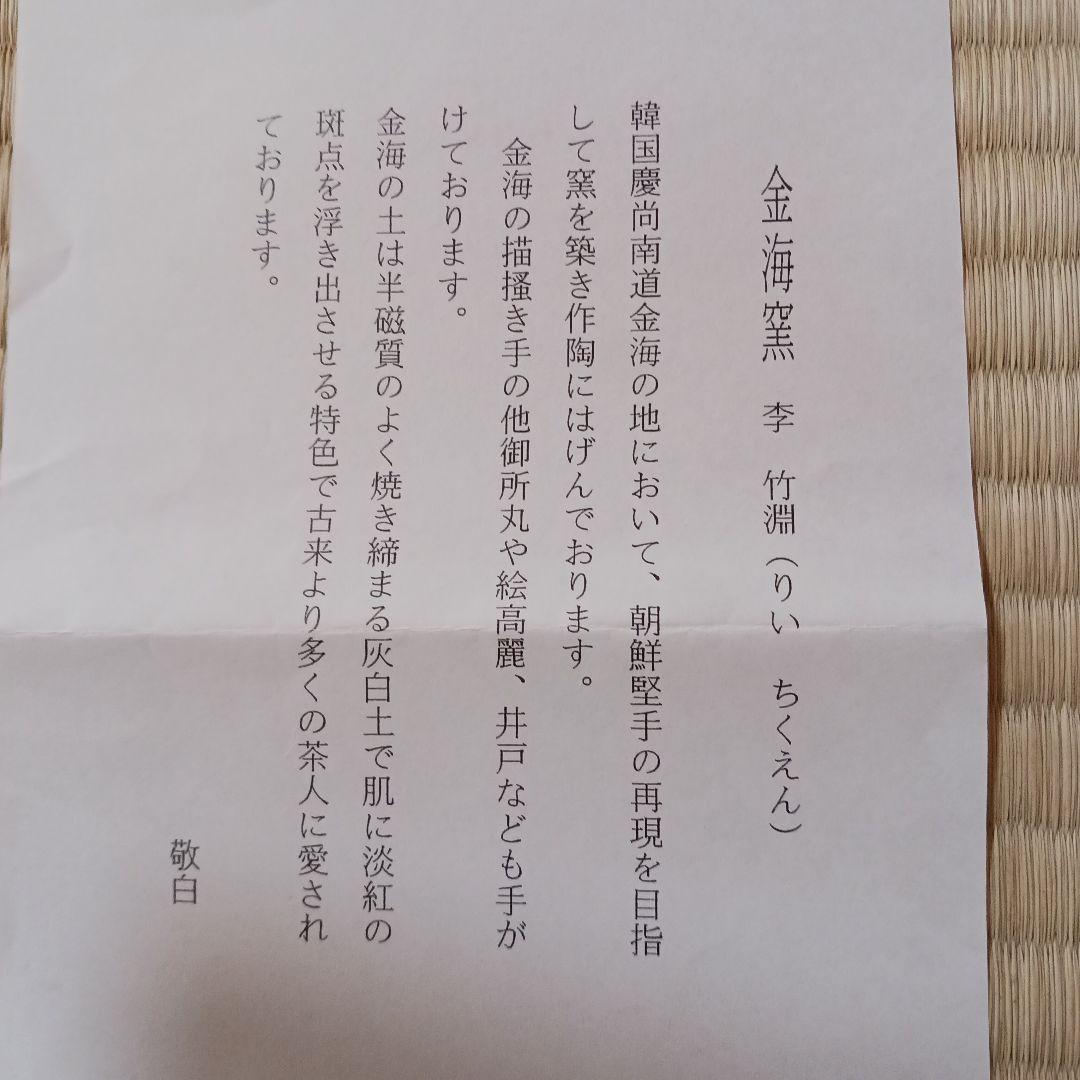 金海窯 李 竹淵（りい ちくえん）
韓国慶尚南道金海の地において、朝鮮堅手の再現を目指
して窯を築き作陶にはげんでおります。
金海の描掻き手の他御所丸や絵高麗、井戸なども手が
けております。
金海の土は半磁質のよく焼き締まる灰白土で肌に淡紅の
斑点を浮き出させる特色で古来より多くの茶人に愛され
ております。
敬白